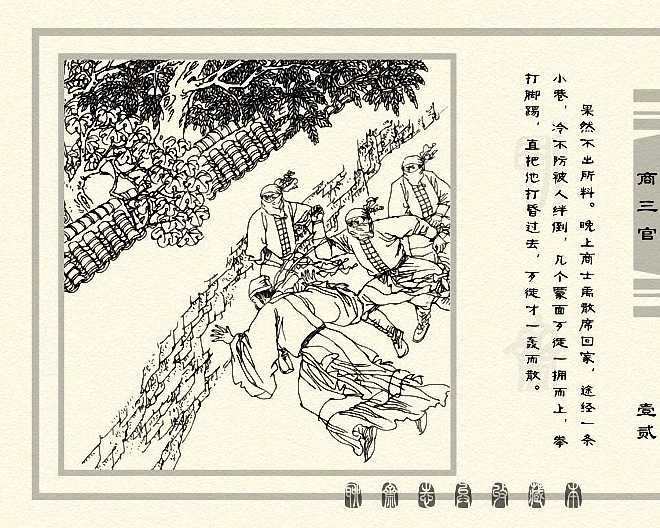 果然不出所料。晚上商士禹散席回家，途经一条
小巷，冷不防被人绊倒，几个蒙面歹徒一拥而上，拳
打脚踢，直把他打昏过去，歹徒才一轰而散。
商三官
壹贰
聊斋志异收藏本